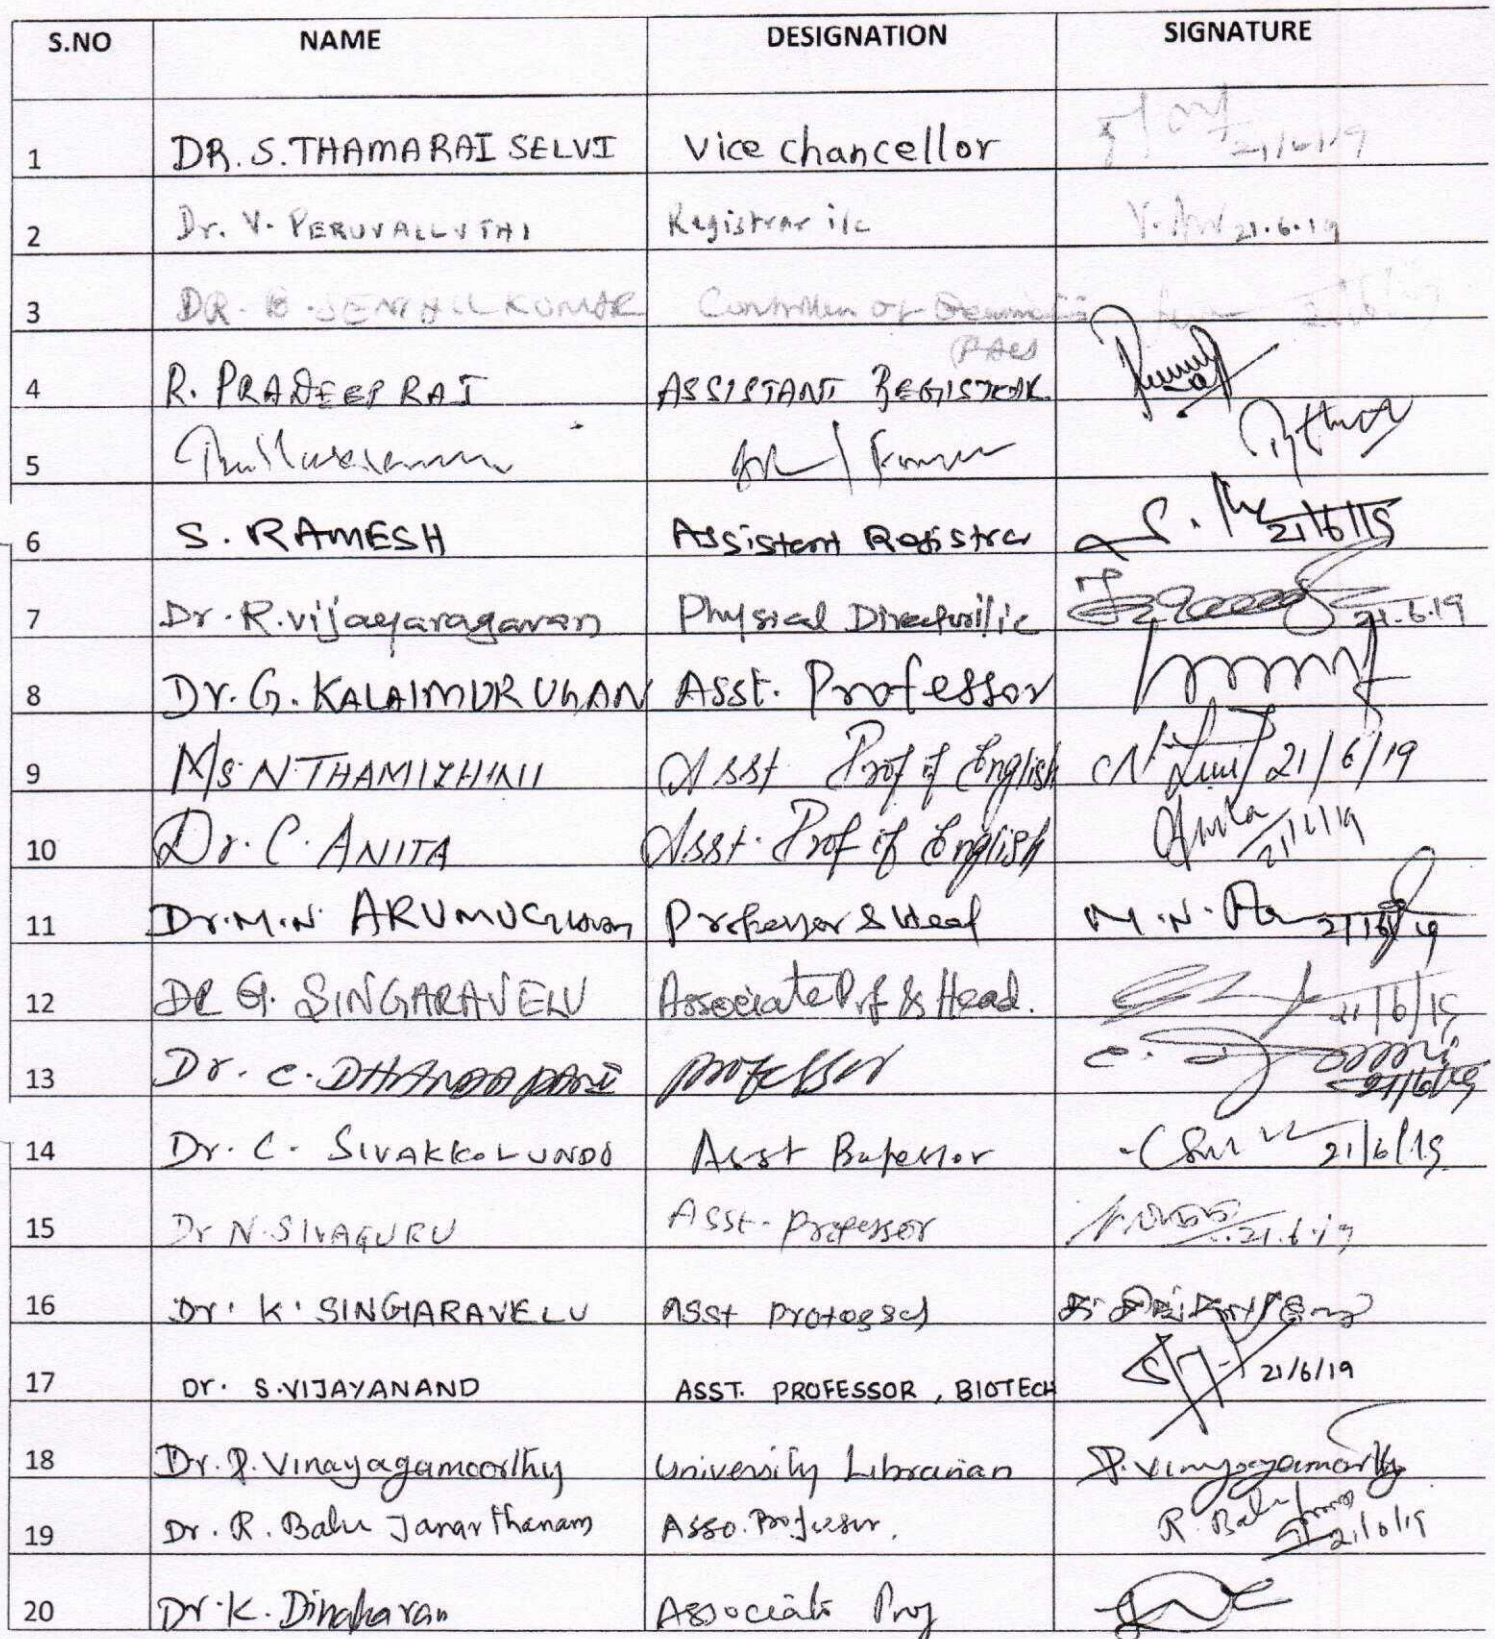 S.NO NAME DESIGNATION SIGNATURE
1 DR. S. THAMARAI SELVI Vice chancellor 21/6/19
2 Dr. V. PERUVALLUTHI Registrar i/c V. 21.6.19
3 DR. B. SENTHILKUMAR Controller of
4 R. PRADEEP RAJ ASSISTANT REGISTRAR
5
6 S. RAMESH Assistant Registrar S. 21/6/19
7 Dr. R. vijayaragavan Physical Director i/c 21.6.19
8 Dr. G. KALAIMURUGAN Asst. Professor
9 Ms. N THAMIZHINII Asst Prof of English N. 21/6/19
10 Dr. C. ANITA Asst. Prof of English Anita 21/6/19
11 Dr. M. N. ARUMUGHAM Professor & Head M. N. 21/6/19
12 DR G. SINGARAVELU Associate Prof & Head. 21/6/19
13 Dr. C. DHANDAPANI professor C. 21/6/19
14 Dr. C. SIVAKKOLUNDU Asst Professor 21/6/19
15 Dr N. SIVAGURU Asst. professor 21.6.19
16 Dr. K. SINGARAVELU Asst professor
17 Dr. S. VIJAYANAND ASST. PROFESSOR, BIOTECH 21/6/19
18 Dr. P. Vinayagamoorthy University Librarian P. Vinayagamoorthy
19 Dr. R. Babu Janarthanam Asso. Professor. R. Babu 21/6/19
20 Dr. K. Dinakaran Associate Prof